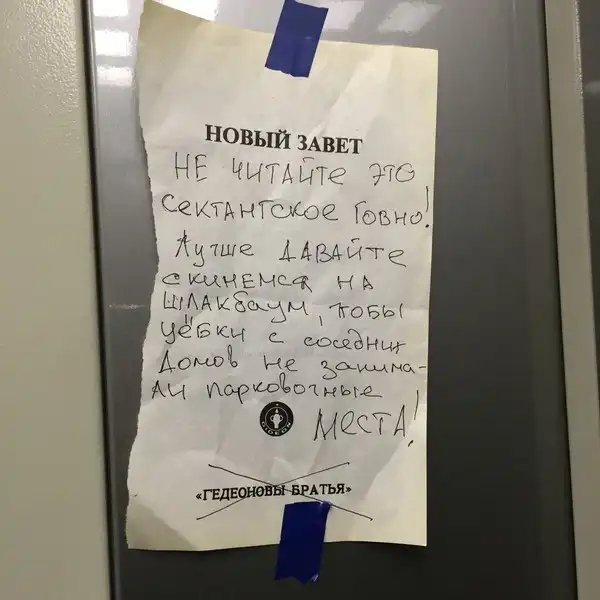 НОВЫЙ ЗАВЕТ
НЕ ЧИТАЙТЕ ЭТО
СЕКТАНТСКОЕ ГОВНО!
ЛУЧШЕ ДАВАЙТЕ
СКИНЕМСЯ НА
ШЛАКБАУМ, ТОБЫ
УЁБКИ С СОСЕДНИХ
ДОМОВ НЕ ЗАНИМА-
ЛИ ПАРКОВОЧНЫЕ
МЕСТА!
GIDEON
«ГЕДЕОНОВЫ БРАТЬЯ»